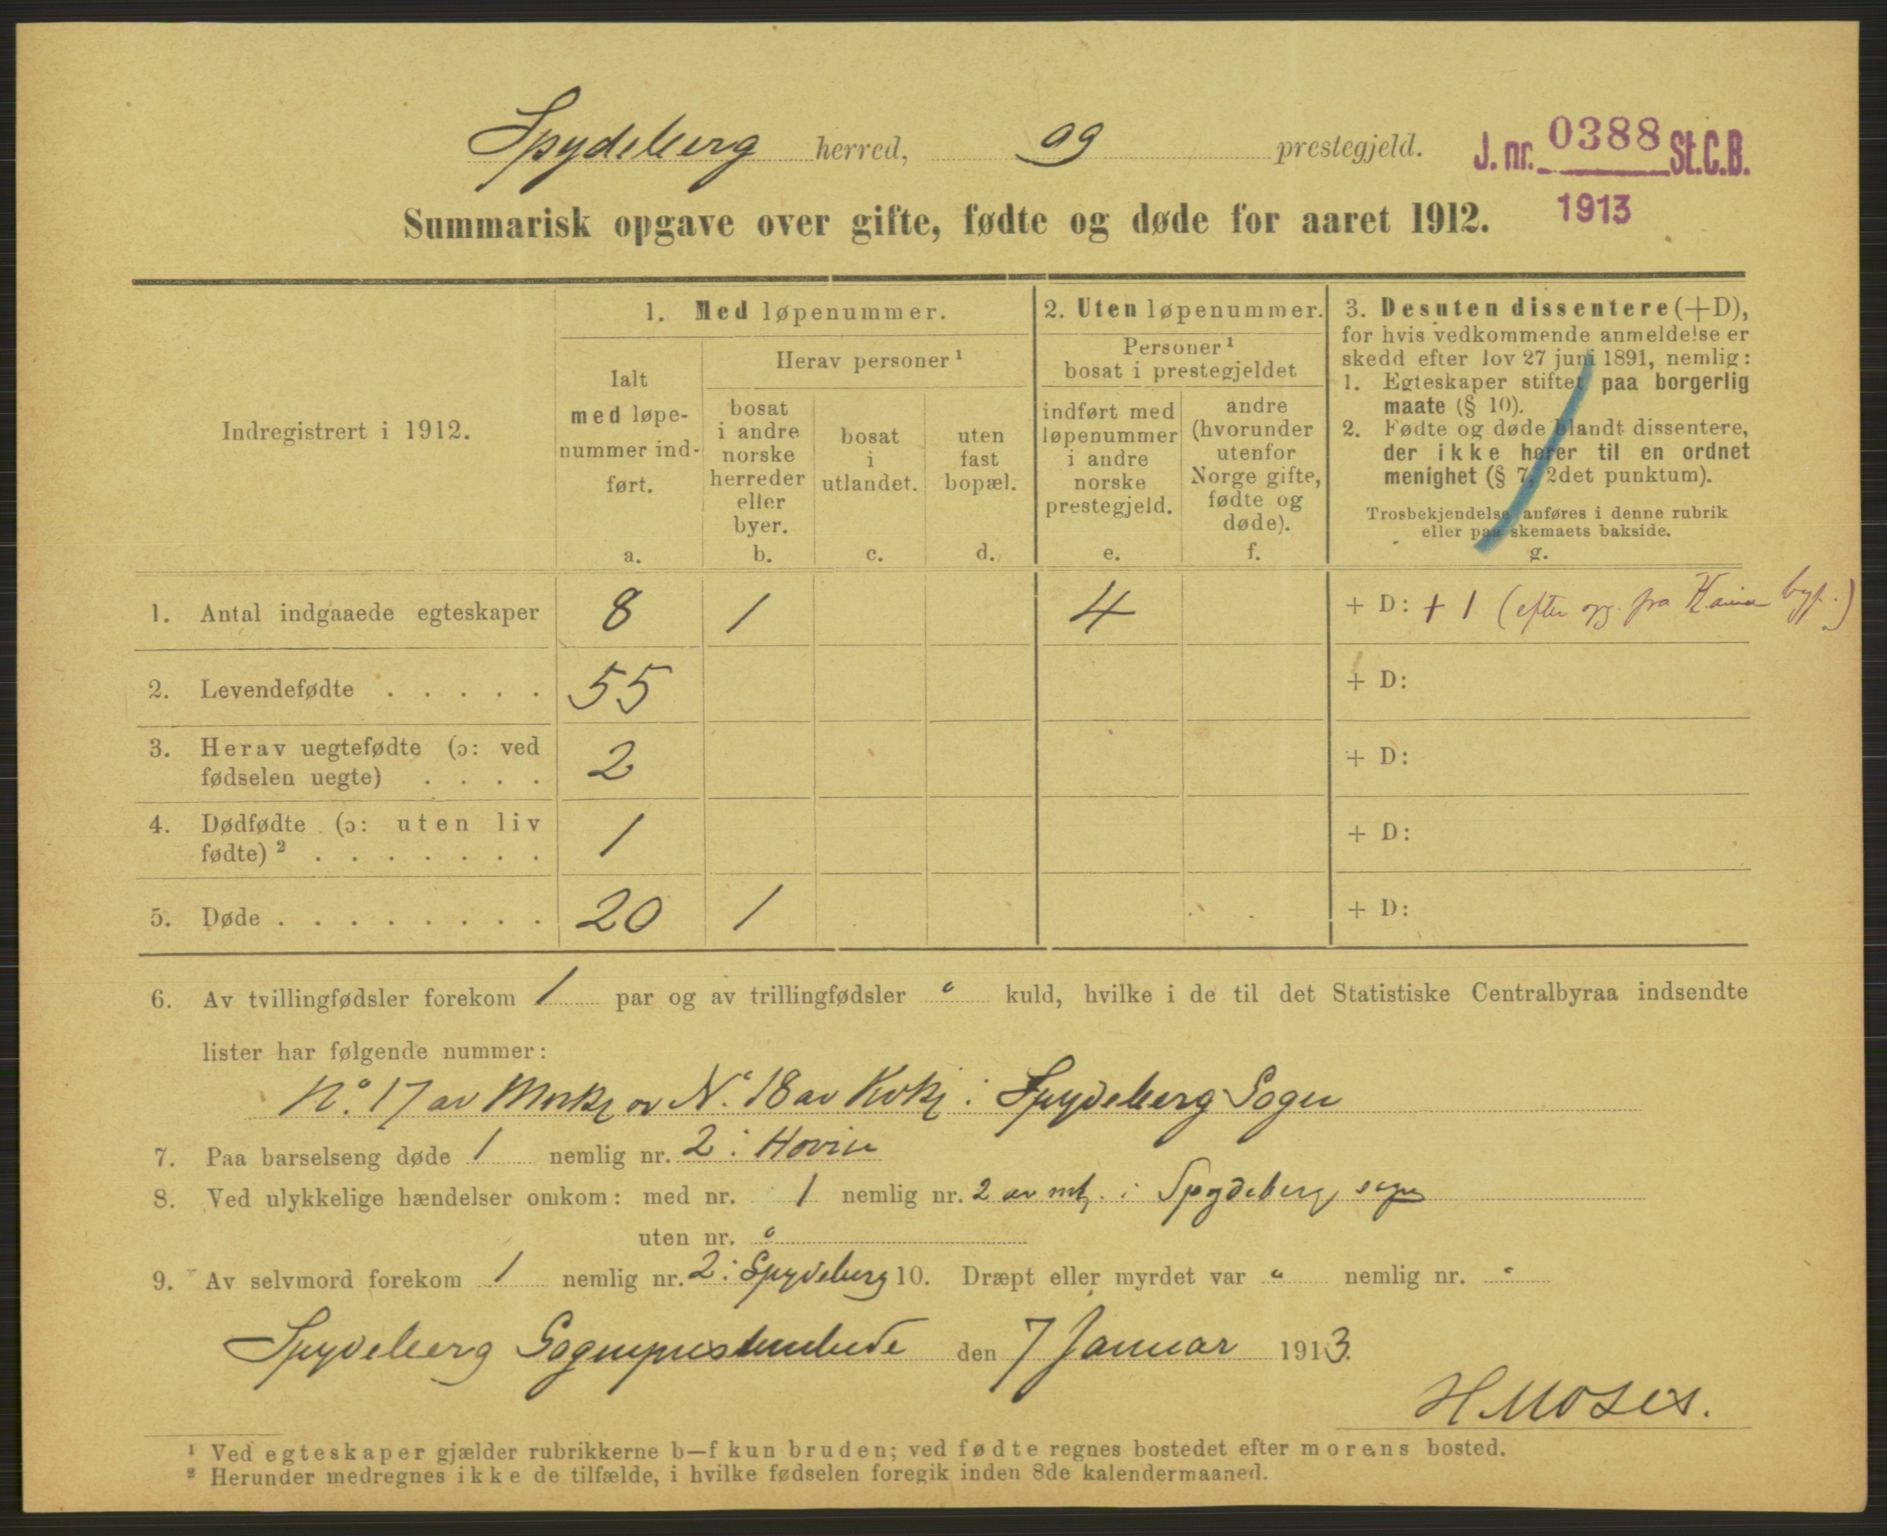 Spydeberg herred, og prestegjeld.
J. nr. 0388 St.C.B.
1913
Summarisk opgave over gifte, fødte og døde for aaret 1912.
Indregistrert i 1912.
1. Med løpenummer.
Ialt med løpenummer indført.
a.
Herav personer ¹
bosat i andre norske herreder eller byer.
b.
bosat i utlandet.
c.
uten fast bopæl.
d.
2. Uten løpenummer.
Personer ¹ bosat i prestegjeldet
indført med løpenummer i andre norske prestegjeld.
e.
andre (hvorunder utenfor Norge gifte, fødte og døde).
f.
3. Desuten dissentere (+D),
for hvis vedkommende anmeldelse er
skedd efter lov 27 juni 1891, nemlig:
1. Egteskaper stiftet paa borgerlig
maate (§ 10).
2. Fødte og døde blandt dissentere,
der ikke hører til en ordnet
menighet (§ 7, 2det punktum).
Trosbekjendelse anføres i denne rubrik
eller paa skemaets bakside.
g.
1. Antal indgaaede egteskaper 8 1 4 + D: + 1 (efter opg. fra byf.)
2. Levendefødte . . . . . 55 + D:
3. Herav uegtefødte (ɔ: ved
fødselen uegte) . . . . 2 + D:
4. Dødfødte (ɔ: uten liv
fødte) ² . . . . . . . 1 + D:
5. Døde . . . . . . . . 20 1 + D:
6. Av tvillingfødsler forekom 1 par og av trillingfødsler " kuld, hvilke i de til det Statistiske Centralbyraa indsendte
lister har følgende nummer:
No. 17 av Mnkj og No. 18 av Kvkj i Spydeberg Sogn
7. Paa barselseng døde 1 nemlig nr. 2 i Hovin
8. Ved ulykkelige hændelser omkom: med nr. 1 nemlig nr. 2 av mk. i Spydeberg sogn
uten nr. "
9. Av selvmord forekom 1 nemlig nr. 2 i Spydeberg 10. Dræpt eller myrdet var " nemlig nr. "
Spydeberg Sogneprestembede den 7 Januar 1913.
H Moses.
¹ Ved egteskaper gjælder rubrikkerne b—f kun bruden; ved fødte regnes bostedet efter morens bosted.
² Herunder medregnes ikke de tilfælde, i hvilke fødselen foregik inden 8de kalendermaaned.